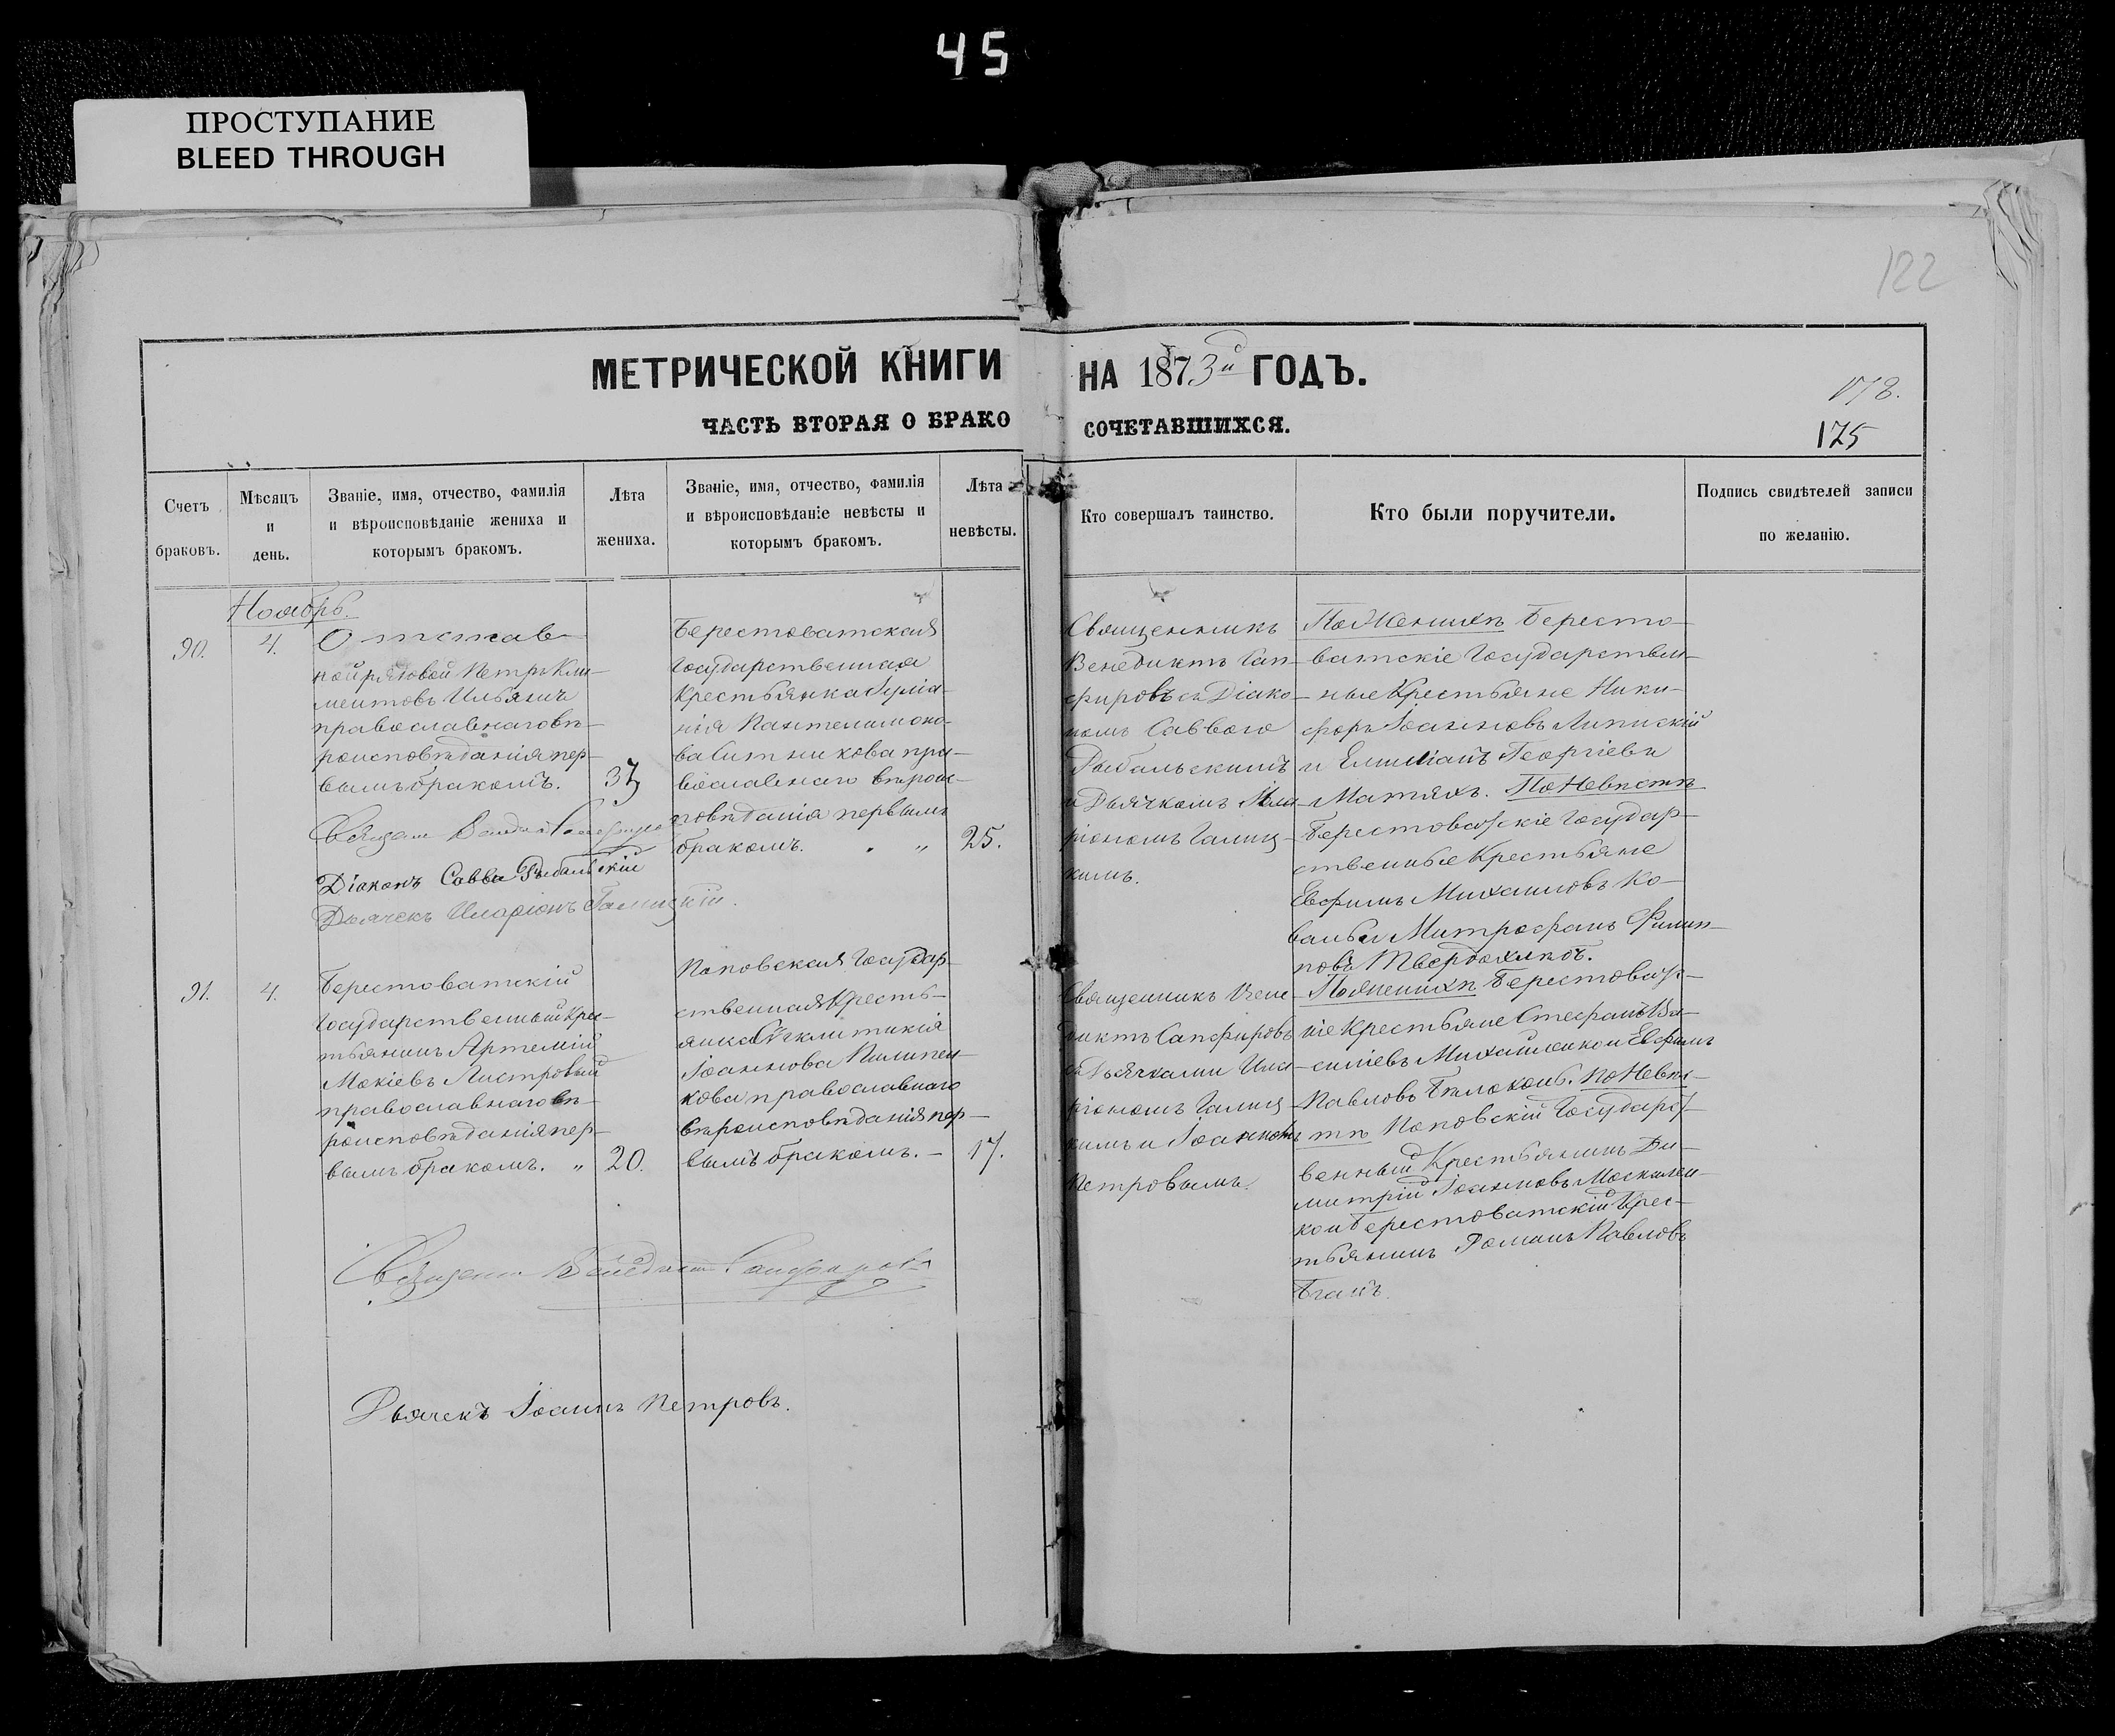 45
ПРОСТУПАНИЕ
BLEED THROUGH
122
МЕТРИЧЕСКОЙ КНИГИ НА 1873й ГОДЪ.
178.
ЧАСТЬ ВТОРАЯ О БРАКОСОЧЕТАВШИХСЯ.
175
Счетъ
браковъ.
Мѣсяцъ
и
день.
Званіе, имя, отчество, фамилія
и вѣроисповѣданіе жениха и
которымъ бракомъ.
Лѣта
жениха.
Званіе, имя, отчество, фамилія
и вѣроисповѣданіе невѣсты и
которымъ бракомъ.
Лѣта
невѣсты.
Кто совершалъ таинство.
Кто были поручители.
Подпись свидѣтелей записи
по желанію.
Ноябрь.
90.
4.
Отстав
ной рядовой Петръ Кли-
ментовъ Ильяшъ
православнаго вѣ-
роисповѣданія пер-
вымъ бракомъ.
37
Берестоватская
Государственная
Крестьянка
нія Пантелимоно-
ва Ситникова пра-
вославнаго вѣроис-
повѣданія первымъ
бракомъ. „
25.
Священникъ
Венедиктъ Сап-
фировъ съ Діако-
номъ Саввою
Рыбальскимъ
и Дьячкомъ Ила-
ріономъ Галиц-
кимъ.
По Женихѣ Бересто-
ватскіе Государствен-
ные Крестьяне Ники-
форъ Іоанновъ Липискій
и Емиліанъ Георгіевъ
Матяхъ. По Невѣстѣ
Берестоватскіе Государ-
ственные Крестьяне
Евфимъ Михаиловъ Ко-
валь и Митрофанъ Филип-
повъ Твердохлѣбъ.
Священ Венедиктъ Сапфировъ
Діаконъ Савва Рыбальскій
Дьячекъ Иларіонъ Галицкій.
91.
4.
Берестоватскій
Государственный Крес-
тьянинъ Артемій
Мокіевъ Листровый
православнаго вѣ-
роисповѣданія пер-
вымъ бракомъ. „
20.
Поповская Государ-
ственная Кресть-
янка
Іоаннова Пилипен-
кова православнаго
вѣроисповѣданія пер-
вымъ бракомъ. –
17.
Священникъ Вене-
диктъ Сапфировъ
съ Дьячками Ила-
ріономъ Галиц-
кимъ и Іоанномъ
Петровымъ.
По Женихѣ Берестоватс-
кіе Крестьяне Стефанъ Ва-
силіевъ Михайленко и Евфимъ
Павловъ Бѣлоконь. По Невѣс-
тѣ Поповскій Государст-
венный Крестьянинъ Ди-
митрій Іоанновъ Москален-
ко и Берестоватскій Крес-
тьянинъ Романъ Павловъ
Бганъ.
Священ Венедиктъ Сапфировъ
Дьячекъ Іоаннъ Петровъ.